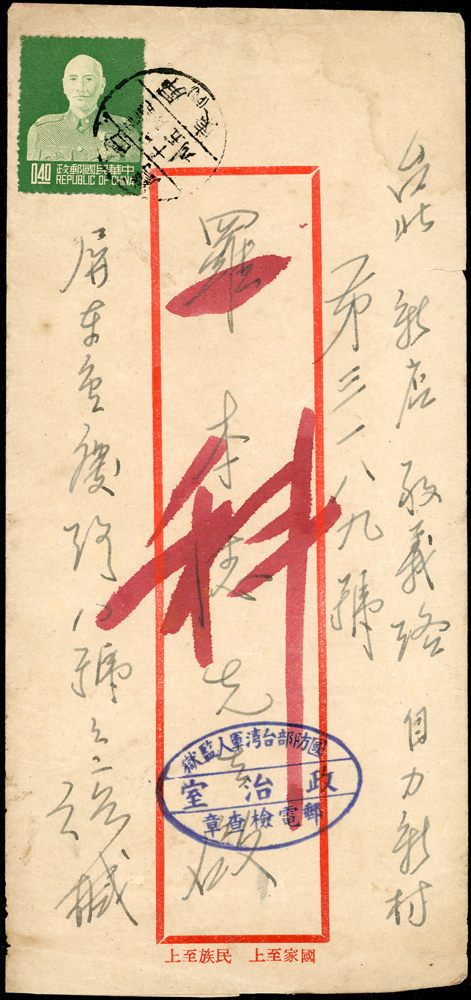 台北 新店 政義路 自力新村
第三一八九號
羅 本 先生 啟
屏東重慶路八號之二 緘
一科
中華民國郵政
REPUBLIC OF CHINA
040
國防部台湾軍人監獄
政治室
郵電檢查章
國家至上 民族至上